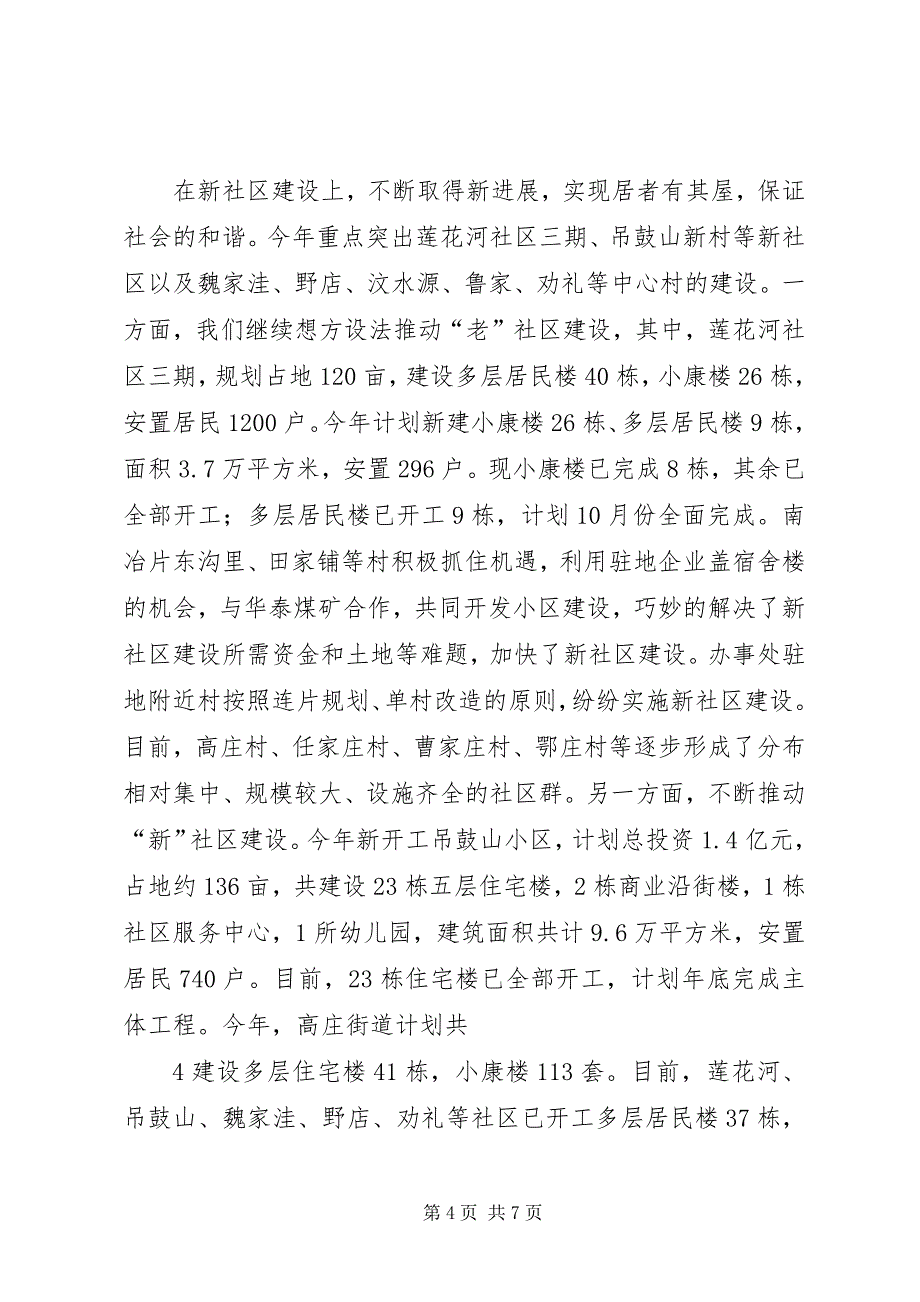 在新社区建设上，不断取得新进展，实现居者有其屋，保证
社会的和谐。今年重点突出莲花河社区三期、吊鼓山新村等新社
区以及魏家洼、野店、汶水源、鲁家、劝礼等中心村的建设。一
方面，我们继续想方设法推动“老”社区建设，其中，莲花河社
区三期，规划占地 120 亩，建设多层居民楼 40 栋，小康楼 26 栋，
安置居民 1200 户。今年计划新建小康楼 26 栋、多层居民楼 9 栋，
面积 3.7 万平方米，安置 296 户。现小康楼已完成 8 栋，其余已
全部开工；多层居民楼已开工 9 栋，计划 10 月份全面完成。南
冶片东沟里、田家铺等村积极抓住机遇，利用驻地企业盖宿舍楼
的机会，与华泰煤矿合作，共同开发小区建设，巧妙的解决了新
社区建设所需资金和土地等难题，加快了新社区建设。办事处驻
地附近村按照连片规划、单村改造的原则，纷纷实施新社区建设。
目前，高庄村、任家庄村、曹家庄村、鄂庄村等逐步形成了分布
相对集中、规模较大、设施齐全的社区群。另一方面，不断推动
“新”社区建设。今年新开工吊鼓山小区，计划总投资 1.4 亿元，
占地约 136 亩，共建设 23 栋五层住宅楼，2 栋商业沿街楼，1 栋
社区服务中心，1 所幼儿园，建筑面积共计 9.6 万平方米，安置
居民 740 户。目前，23 栋住宅楼已全部开工，计划年底完成主
体工程。今年，高庄街道计划共
4 建设多层住宅楼 41 栋，小康楼 113 套。目前，莲花河、
吊鼓山、魏家洼、野店、劝礼等社区已开工多层居民楼 37 栋，
第 4 页 共 7 页